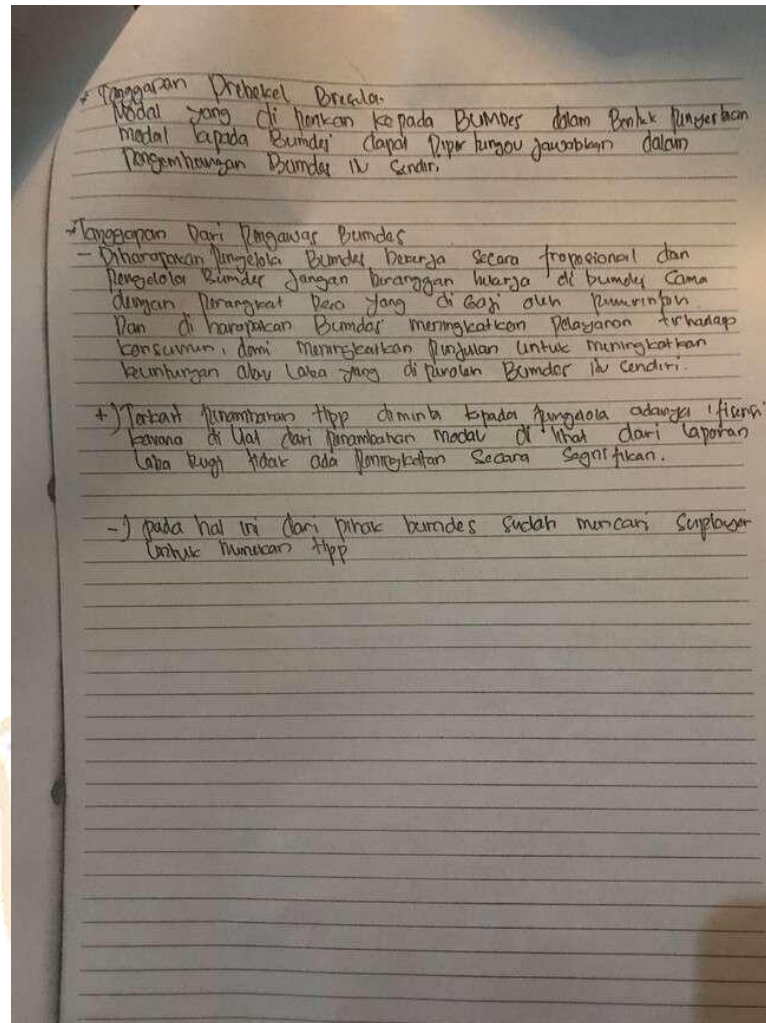 * Tanggapan Prebekel Bregila.
Modal yang di berikan kepada BUMDes dalam Bentuk Penyertaan
modal kepada Bumdes dapat Diper tungou jawabkan dalam
Pengembangan Bumdes itu Sendiri.
* Tanggapan Dari Pengawas Bumdes
- Diharapakan Pengelola Bumdes bekerja secara froposional dan
Pengelola Bumdes Jangan beranggan bekerja di bumdes Sama
dengan Perangkat Desa yang di Gaji oleh Pemerintah.
Dan di harapakan Bumdes meningkatkan Pelayanan terhadap
konsumen, demi meningkatkan Penjulan untuk meningkatkan
keuntungan atau Laba yang di peroleh Bumdes itu sendiri.
+) Terkait Penambahan Hpp diminta kepada pengelola adanya ifisensi
karena di Liat dari Penambahan modal di lihat dari Laporan
Laba Rugi tidak ada Peningkatan Secara Segnifikan.
-) pada hal ini dari pihak bumdes sudah mencari Suplayer
untuk menekan Hpp